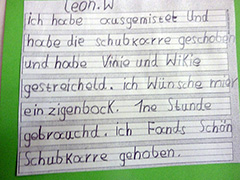 Leon.W
ich habe ausgemistet Und
habe die schubkarre geschoben
und habe Vinie und Wikie
gestreicheld. ich Wünsche mier
ein zigenbock. 1ne Stunde
gebrauchd. ich Fands Schön
Schubkarre gehoben.